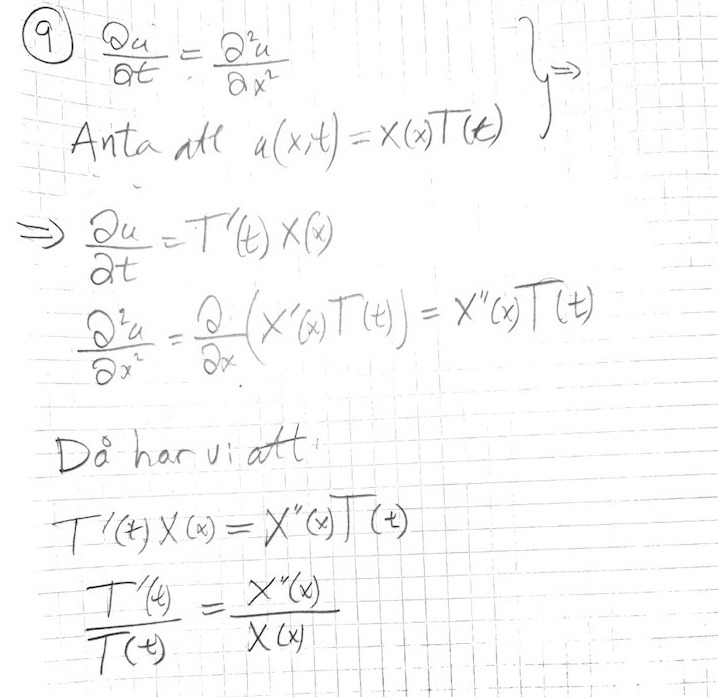 ⑨ ∂u/∂t = ∂²u/∂x² } ⇒
Anta att u(x,t) = X(x)T(t)
⇒ ∂u/∂t = T'(t) X(x)
∂²u/∂x² = ∂/∂x (X'(x)T(t)) = X''(x)T(t)
Då har vi att
T'(t) X(x) = X''(x)T(t)
T'(t)/T(t) = X''(x)/X(x)